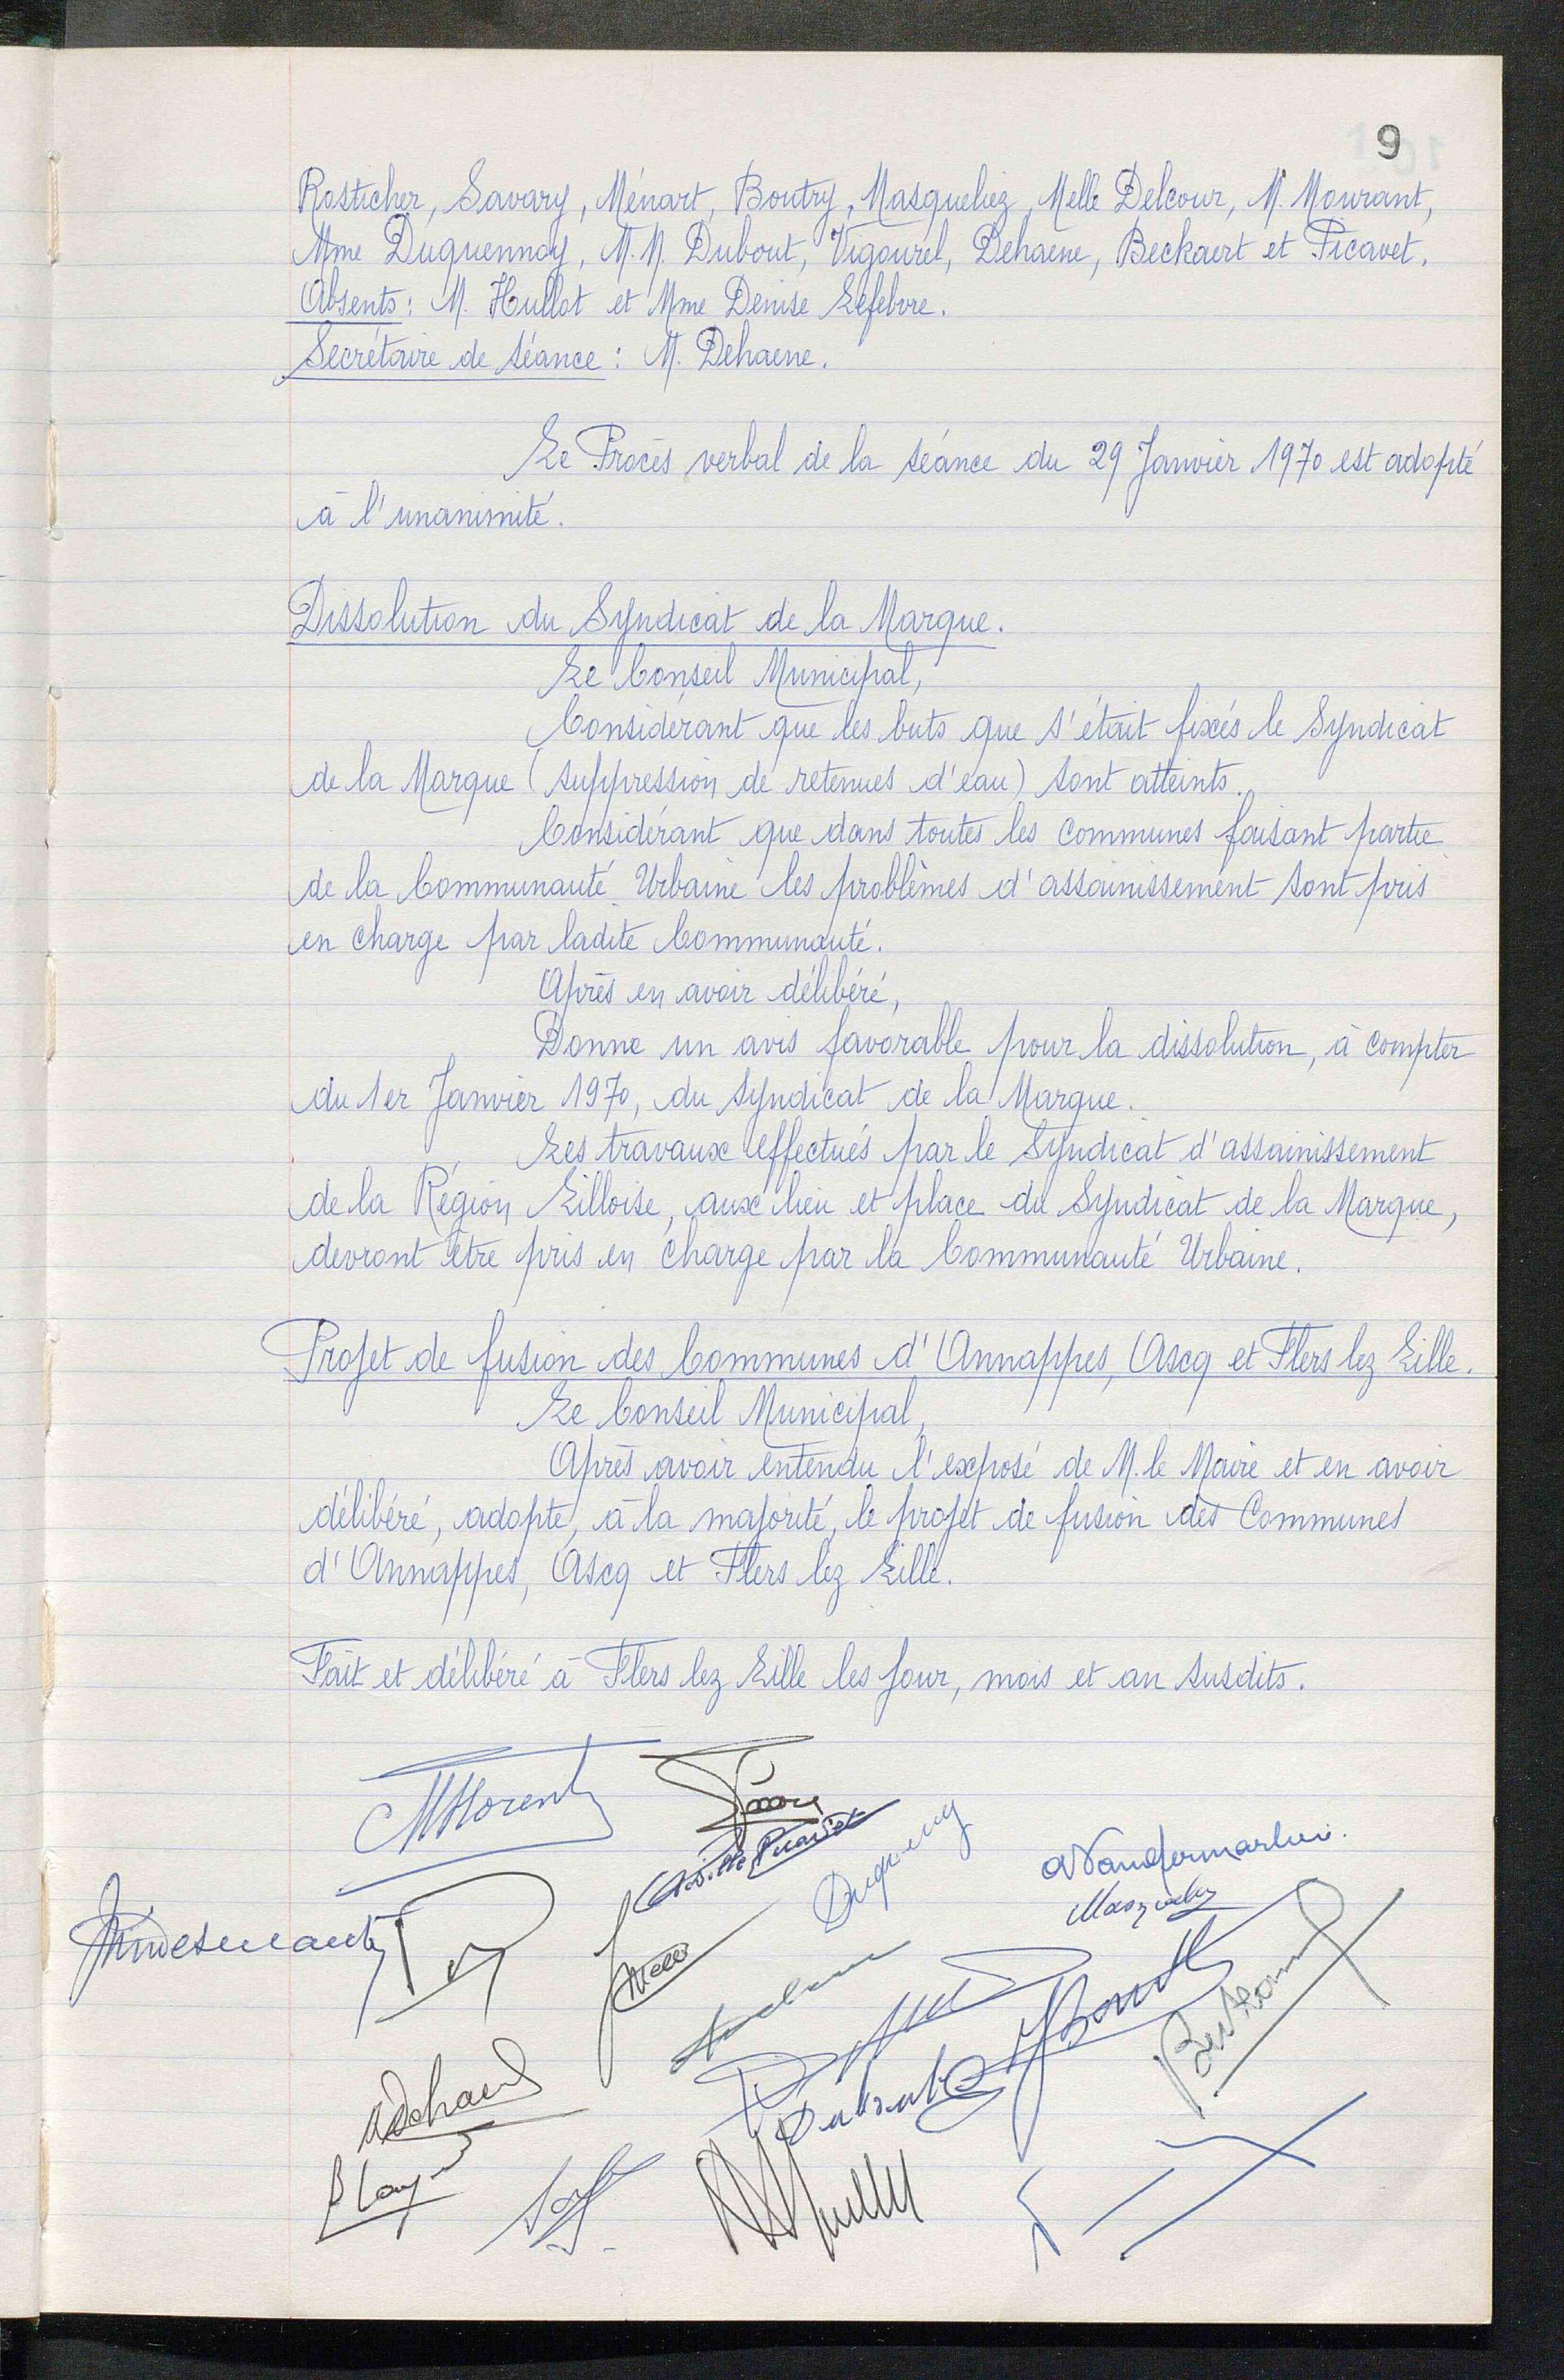 9
Rosticher, Savary, Ménart, Boutry, Masqueliez, Melle Delcour, M. Mourant,
Mme Duquennoy, M.M. Dubout, Vigourel, Dehaene, Beckaert et Picavet.
Absents: M. Hullot et Mme Denise Lefebvre.
Secrétaire de séance: M. Dehaene.
Le Procès verbal de la séance du 29 Janvier 1970 est adopté
à l'unanimité.
Dissolution du Syndicat de la Marque.
Le Conseil Municipal,
Considérant que les buts que s'était fixés le Syndicat
de la Marque (suppression de retenues d'eau) sont atteints.
Considérant que dans toutes les communes faisant partie
de la Communauté Urbaine les problèmes d'assainissement sont pris
en charge par ladite Communauté.
Après en avoir délibéré,
Donne un avis favorable pour la dissolution, à compter
du 1er Janvier 1970, du Syndicat de la Marque.
Les travaux effectués par le Syndicat d'assainissement
de la Région Lilloise, aux lieu et place du Syndicat de la Marque,
devront être pris en charge par la Communauté Urbaine.
Projet de fusion des Communes d'Annappes, Ascq et Flers lez Lille.
Le Conseil Municipal,
Après avoir entendu l'exposé de M. le Maire et en avoir
délibéré, adopte, à la majorité, le projet de fusion des Communes
d'Annappes, Ascq et Flers lez Lille.
Fait et délibéré à Flers lez Lille les jour, mois et an susdits.